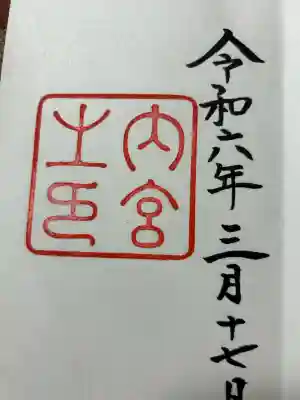 令和六年三月十七日
内宮
之印